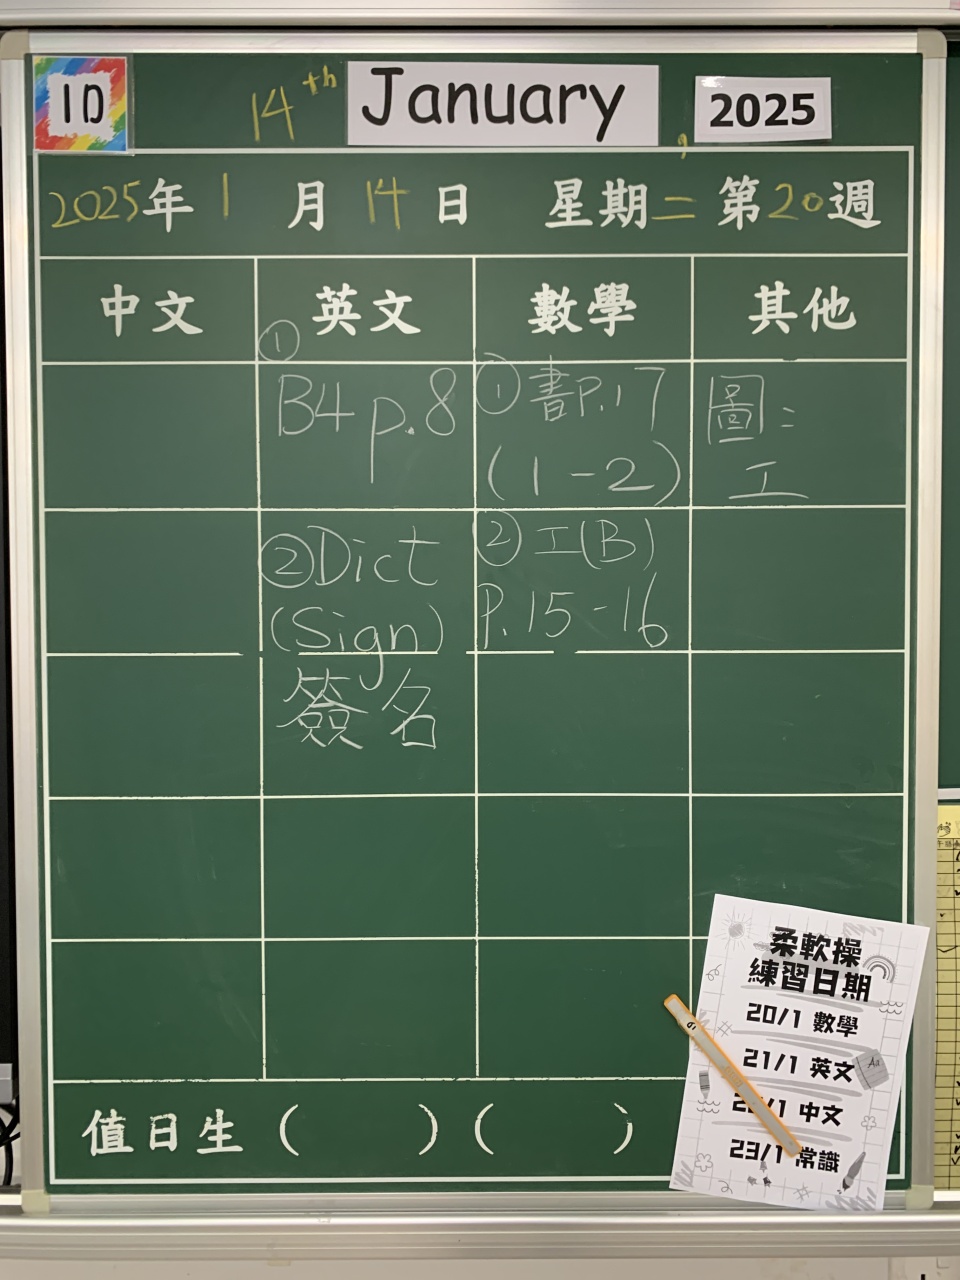 1D
14th January, 2025
2025年1月14日 星期二 第20週
中文 英文 數學 其他
① B4 p.8
① 書P.17
(1-2)
圖:
工
② Dict
(Sign)
簽名
② 工(B)
P.15-16
值日生 ( ) ( )
柔軟操
練習日期
20/1 數學
21/1 英文
中文
23/1 常識